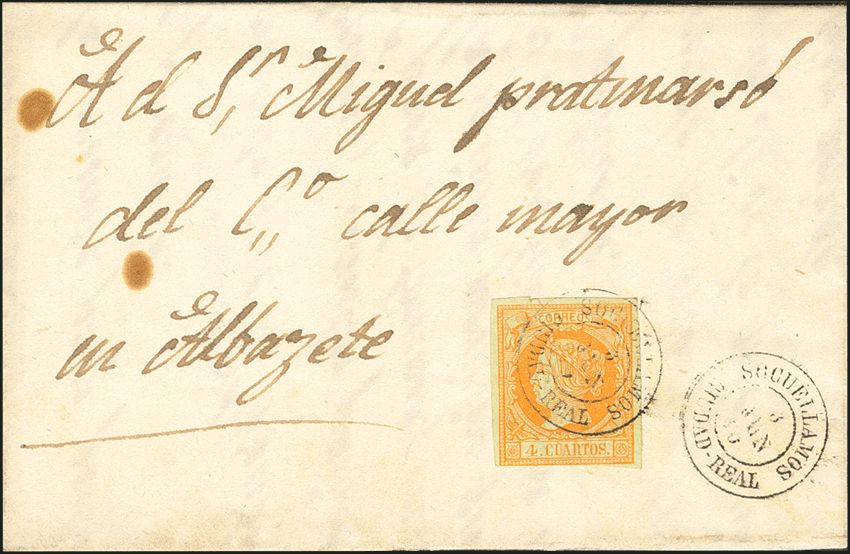 A d S.r Miguel pratmarsó
del C.o calle mayor
en Albazete
CORREOS
4. CUARTOS.
SOCUELLAMOS
REAL
SOCUELLAMOS
CIUDAD-REAL
8
JUN